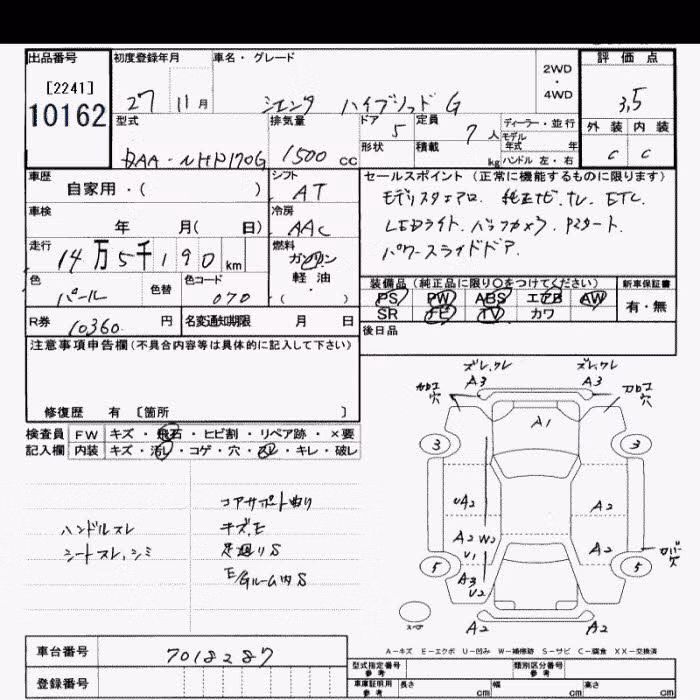 出品番号
[2241]
10162
初度登録年月
27 11月
車名・グレード
シエンタ ハイブリッド G
2WD
・
4WD
評価点
3.5
外装 内装
C C
型式
DAA-NHP170G
排気量
1500 CC
ドア 5
形状
定員 7人
積載 kg
ディーラー・並行
モデル
年式 年
ハンドル 左・右
車歴
自家用・( )
シフト
AT
車検
年 月( 日)
冷房
AAC
走行
14万5千190 km
燃料
ガソリン
軽油
・( )
色
パール
色替
色コード
070
R券
10360 円
名変通知期限 月 日
セールスポイント(正常に機能するものに限ります)
モデリスタエアロ. 純正ナビ. TV. ETC
LEDライト. バックカメラ. Pスタート.
パワースライドドア.
装備品(純正品に限り○をつけてください)
PS PW ABS エアB AW
SR TV カワ
新車保証書
有・無
後日品
注意事項申告欄(不具合内容等は具体的に記入して下さい)
修復歴 有 〔箇所 〕
検査員
記入欄
FW キズ・飛石・ヒビ割・リペア跡・×要
内装 キズ・汚レ・コゲ・穴・スレ・キレ・破レ
ハンドルスレ
シートスレ,シミ
コアサポート曲り
キズ,E
足廻りS
E/Gルーム内S
ズレ,ワレ
A3
ズレ,ワレ
A3
穴
穴
A1
3
3
UA2
A2
A2 W2
U1
A2
穴
5
5
A3
U2
スペア
A2
A2
A-キズ E-エクボ U-凹み W-補修跡 S-サビ C-腐食 XX-交換済
車台番号
7018287
登録番号
型式指定番号
参考
類別区分番号
参考
車庫証明用
参考
長さ cm
幅 cm
高さ cm